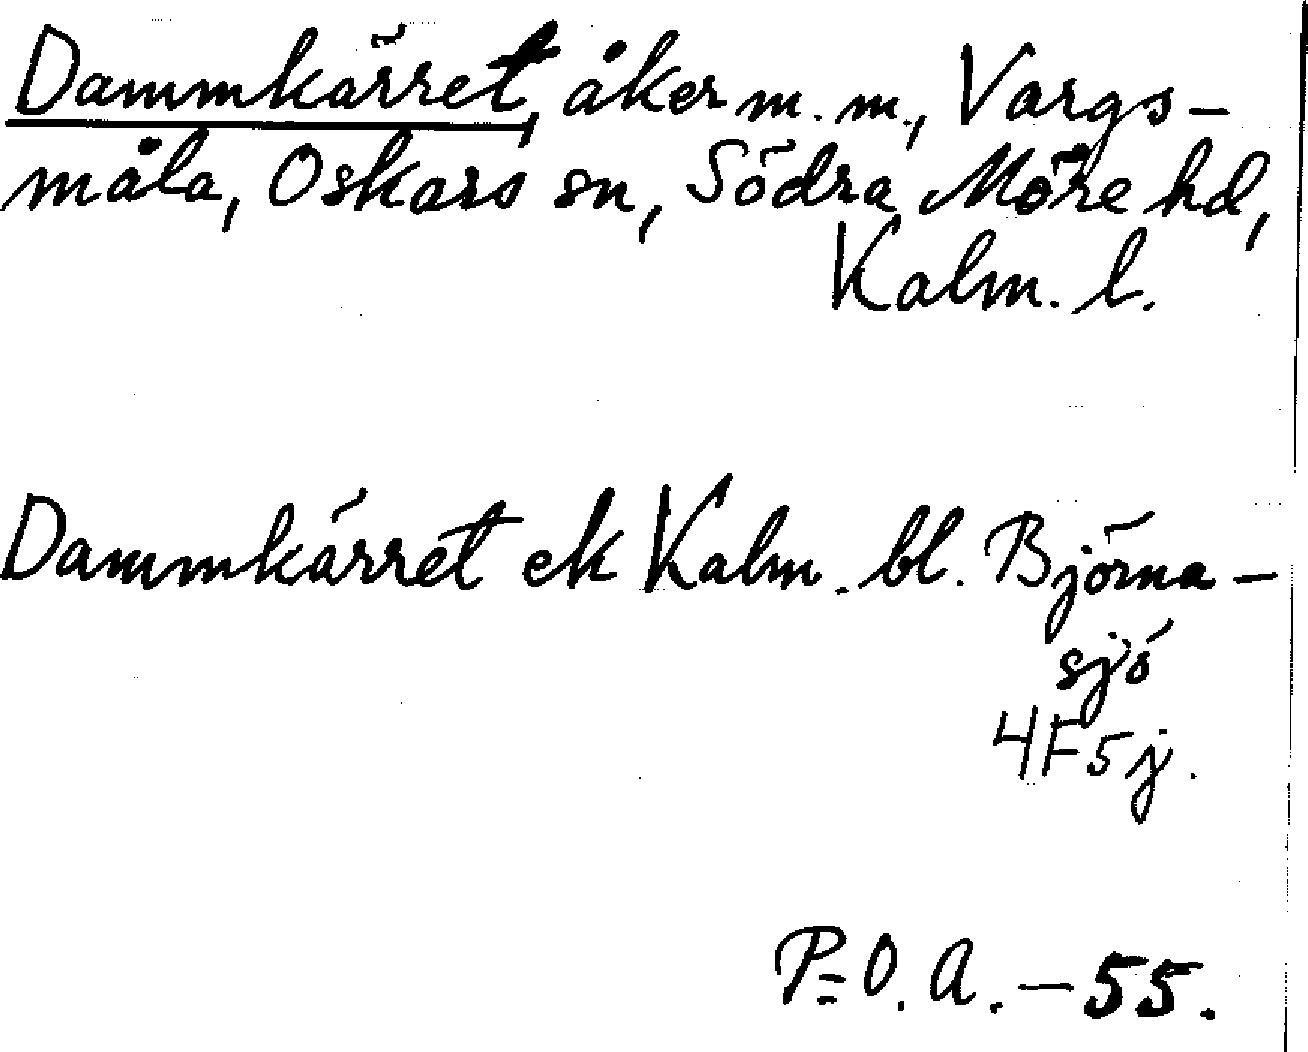 Dammkärret, åker m. m., Vargs-
måla, Oskars sn, Södra Möre hd,
Kalm. l.
Dammkärret ek Kalm. bl. Björna-
sjö
4F5j.
P=O. A. - 55.